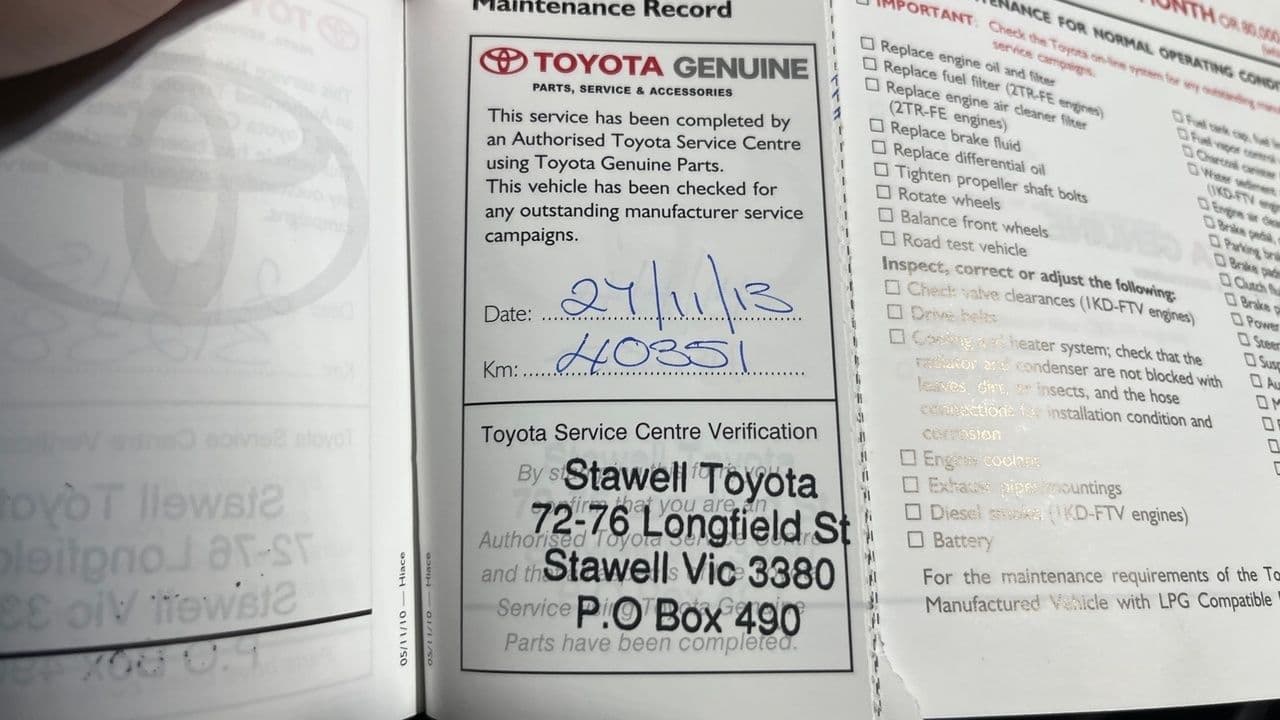 Maintenance Record
TOYOTA GENUINE
PARTS, SERVICE & ACCESSORIES
This service has been completed by
an Authorised Toyota Service Centre
using Toyota Genuine Parts.
This vehicle has been checked for
any outstanding manufacturer service
campaigns.
Date: 27/11/13
Km: 40351
Toyota Service Centre Verification
Stawell Toyota
72-76 Longfield St
Stawell Vic 3380
P.O Box 490
By
that you are an
Authorised Toyota
and
Service
Parts have been completed.
05/11/10 — Hiace
05/11/10 — Hiace
MONTH OR 80,000
FOR NORMAL OPERATING
IMPORTANT: Check the Toyota on-line system for any outstanding
service campaigns.
Replace engine oil and filter
Replace fuel filter (2TR-FE engines)
Replace engine air cleaner filter
(2TR-FE engines)
Replace brake fluid
Replace differential oil
Tighten propeller shaft bolts
Rotate wheels
Balance front wheels
Road test vehicle
Inspect, correct or adjust the following:
Check valve clearances (1KD-FTV engines)
Drive belts
Cooling and heater system; check that the
radiator and condenser are not blocked with
leaves, dirt, or insects, and the hose
connections for installation condition and
corrosion
Engine coolant
Exhaust pipes mountings
Diesel smoke (1KD-FTV engines)
Battery
For the maintenance requirements of the
Manufactured Vehicle with LPG Compatible
Fuel tank cap, fuel
Fuel vapor control
Charcoal canister
Water sediment
(1KD-FTV
Engine air
Brake pedal
Parking
Brake
Clutch
Brake
Power